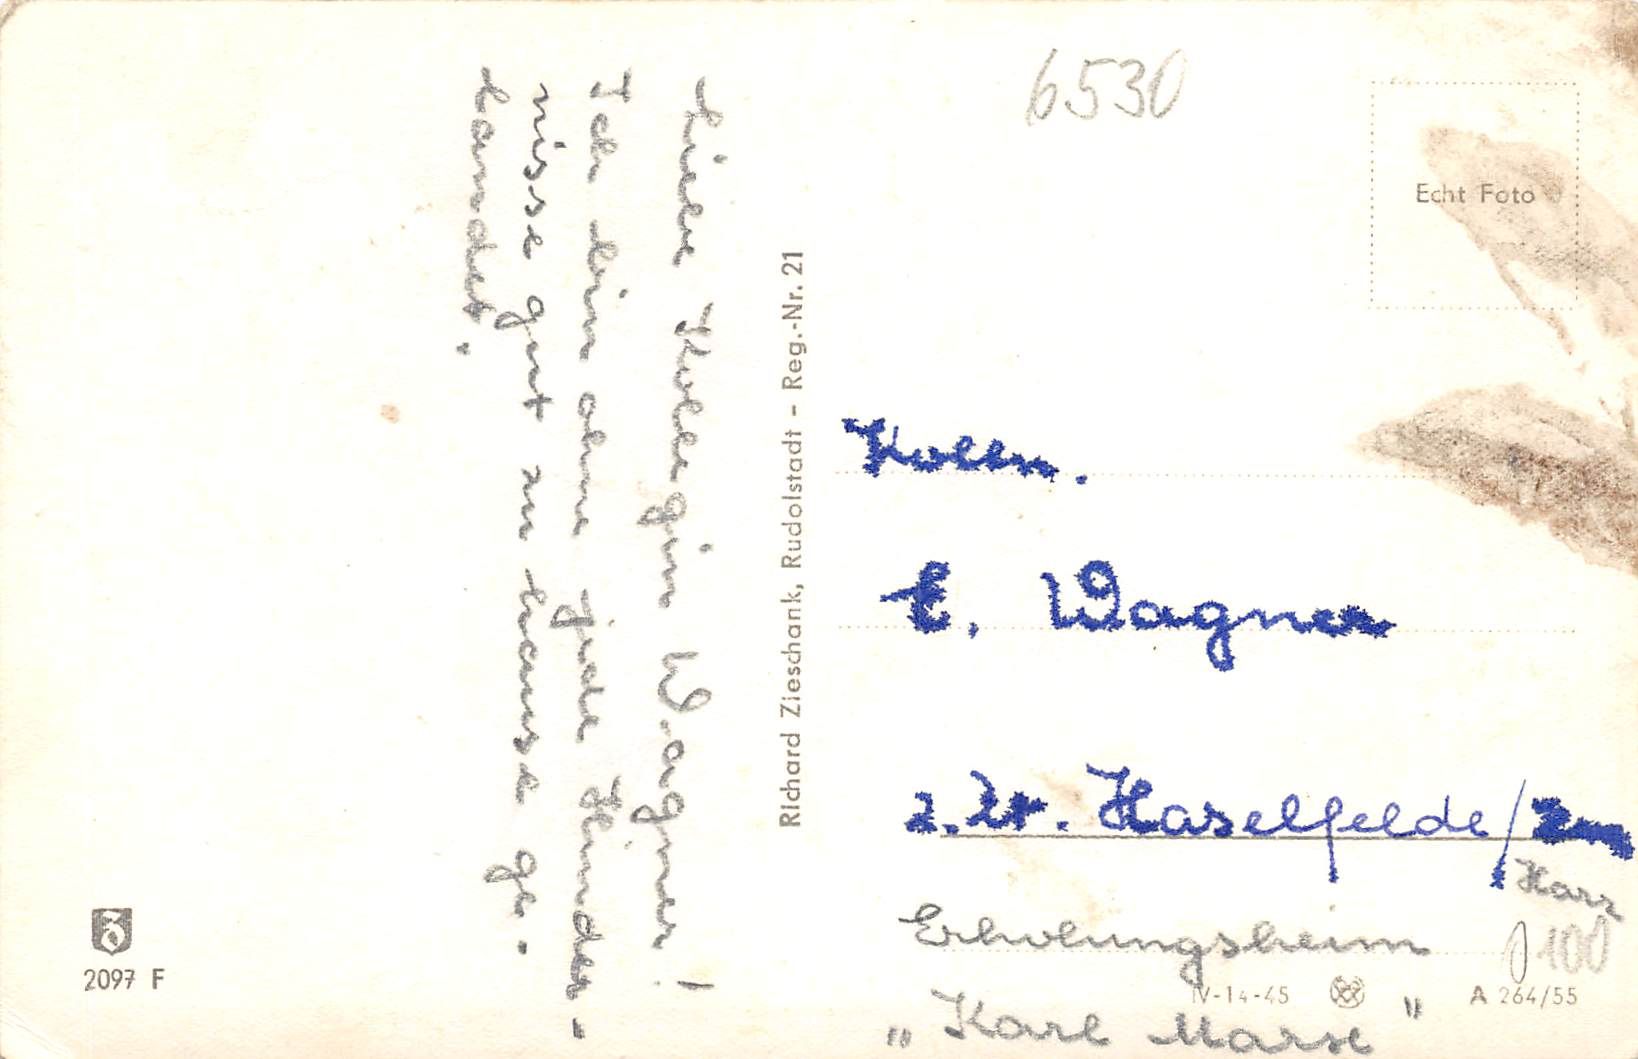 Liebe Kollegin Wagner!
Ich bin ohne jede Hinder-
nisse gut zu Hause ge-
landet.
Richard Zieschank, Rudolstadt - Reg.-Nr. 21
2097 F
6530
Echt Foto
Kolln.
E. Wagner
z. Zt. Haselfelde/
Harz
Erholungsheim
100
IV-14-45
A 264/55
"Karl Marx"